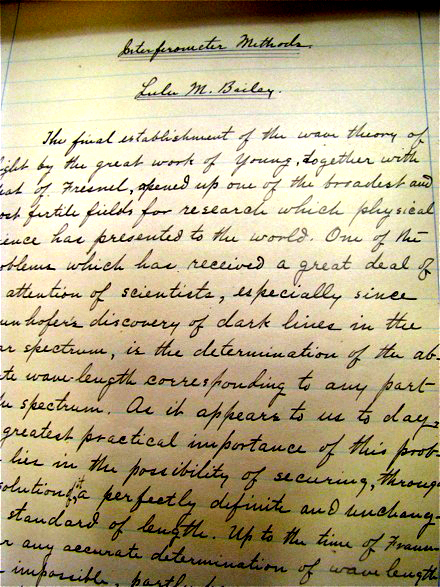 Interferometer Methods.
Lulu M. Bailey.
The final establishment of the wave theory of
ight by the great work of Young, together with
at of Fresnel, opened up one of the broadest and
ost fertile fields for research which physical
ience has presented to the world. One of the
oblems which has received a great deal of
attention of scientists, especially since
unhofer's discovery of dark lines in the
ar spectrum, is the determination of the ab-
te wave-length corresponding to any part
spectrum. As it appears to us to day,
greatest practical importance of this prob-
lies in the possibility of securing, through
solution, a perfectly definite and unchang-
standard of length. Up to the time of Fraun
any accurate determination of wave length
impossible, partly